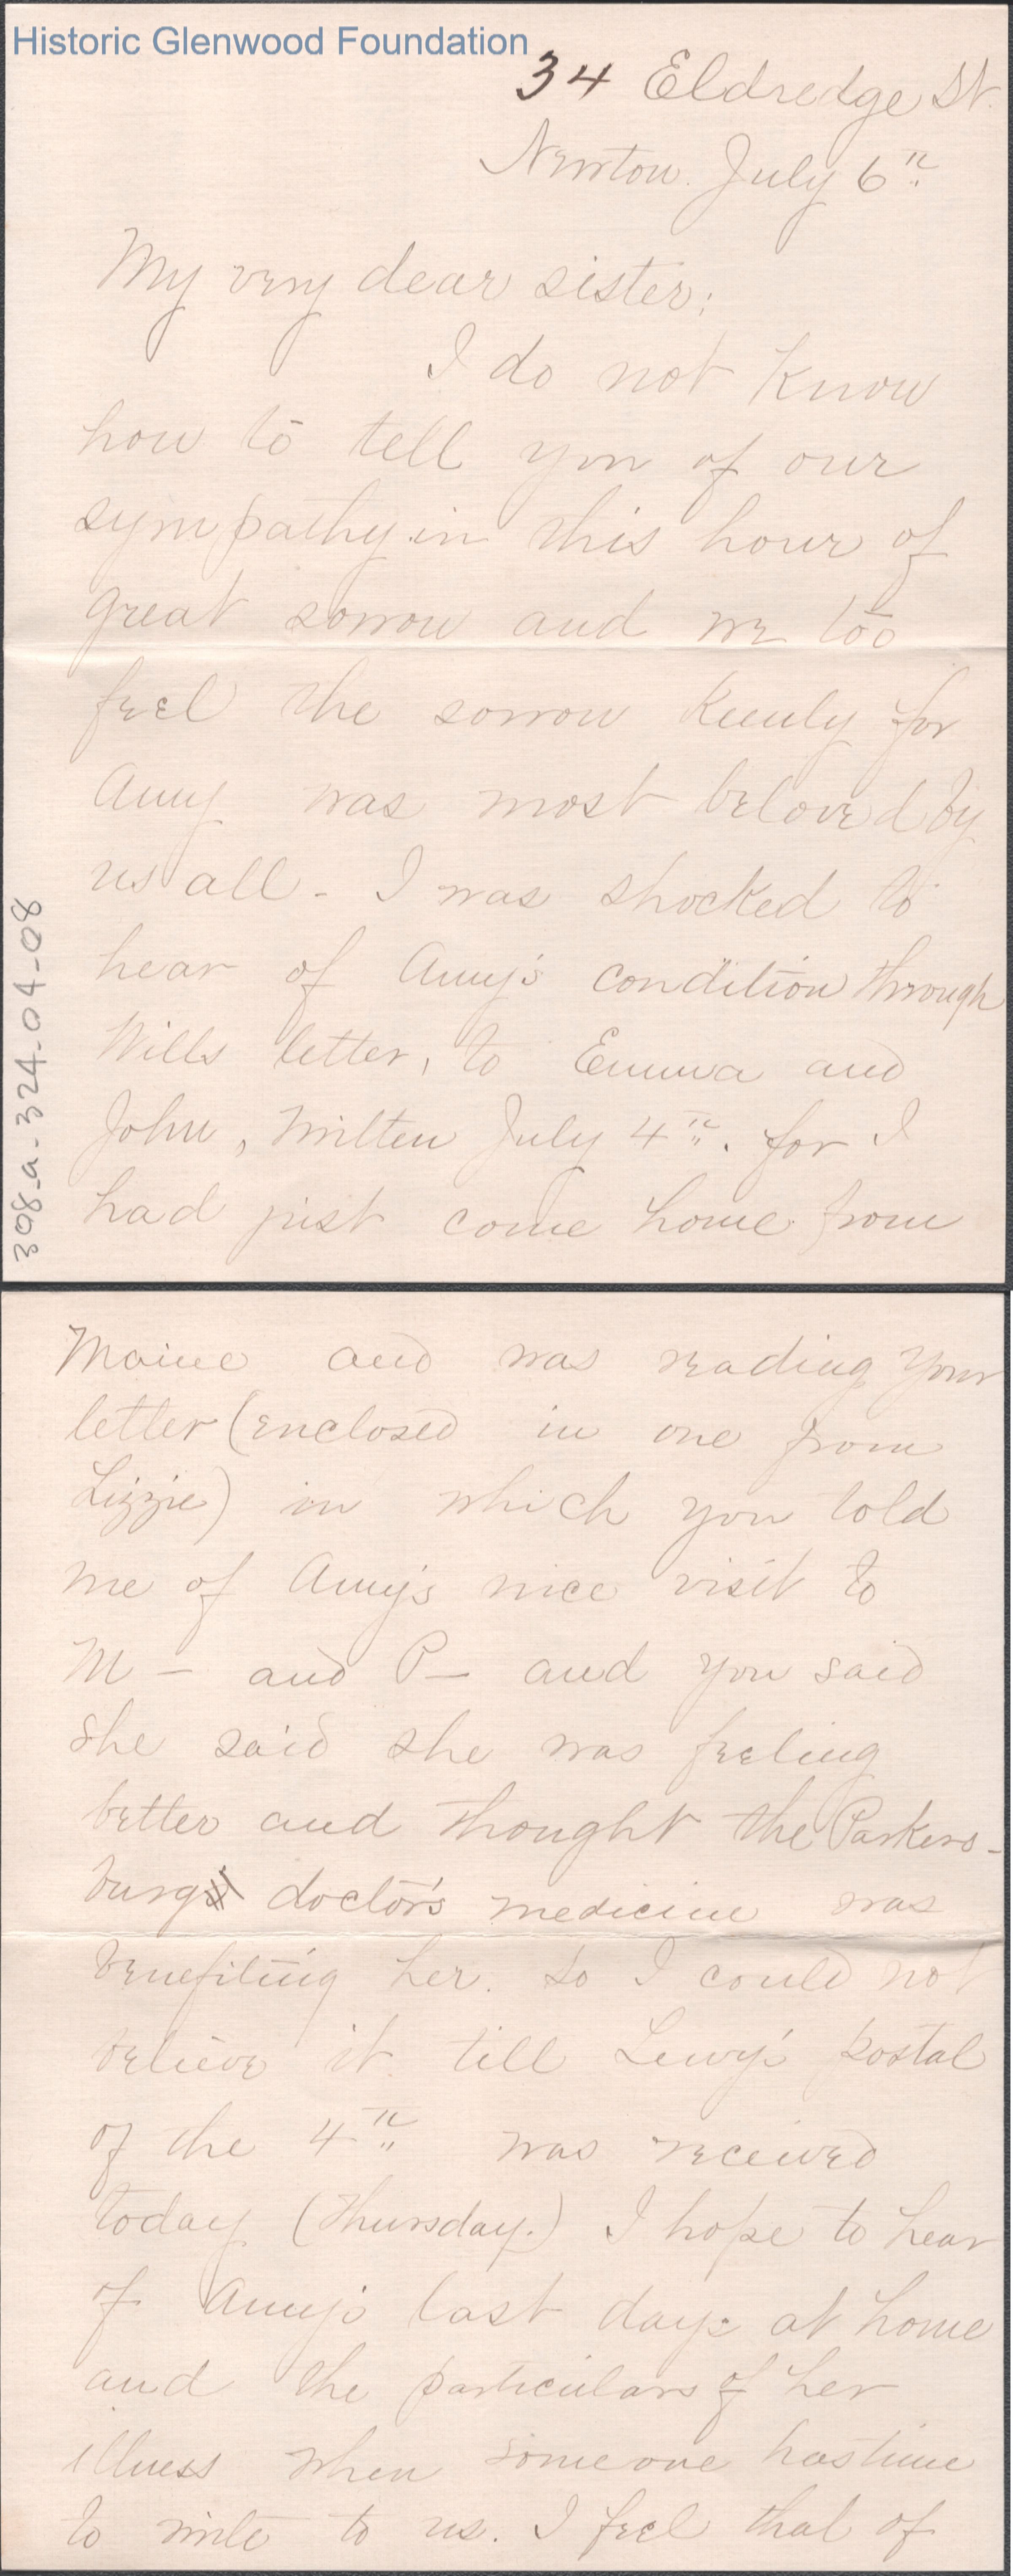 Historic Glenwood Foundation
34 Eldredge St.
Newton. July 6th.
My very dear sister;
I do not know
how to tell you of our
sympathy in this hour of
great sorrow and we too
feel the sorrow keenly for
Amy was most beloved by
us all - I was shocked to
hear of Amy's condition through
Wills letter, to Emma and
John, written July 4th. for I
had just come home from
308-a-324-04-08
Maine and was reading your
letter (enclosed in one from
Lizzie) in which you told
me of Amy's nice visit to
M - and P - and you said
she said she was feeling
better and thought the Parkers-
burg doctor's medicine was
benefiting her. So I could not
believe it till Lewy's postal
of the 4th was received
today (Thursday.) I hope to hear
of Amy's last days at home
and the particulars of her
illness when someone has time
to write to us. I feel that of